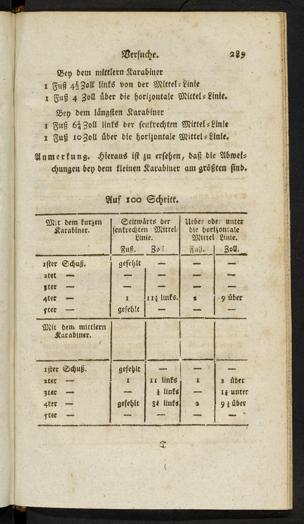 Versuche. 289
Bey dem mittlern Karabiner
1 Fuß 4½ Zoll links von der Mittel-Linie
1 Fuß 4 Zoll über die horizontale Mittel-Linie.
Bey dem längsten Karabiner
1 Fuß 6¼ Zoll links der senkrechten Mittel-Linie
1 Fuß 10 Zoll über die horizontale Mittel-Linie.
Anmerkung. Hieraus ist zu ersehen, daß die Abwei-
chungen bey dem kleinen Karabiner am größten sind.
Auf 100 Schritt.
Mit dem kurzen Karabiner. Seitwärts der senkrechten Mittel Linie. Ueber oder unter die horizontale Mittel Linie.
Fuß. Zoll Fuß. Zoll.
1ster Schuß. gefehlt — — —
2ter — — — — —
3ter — — — — —
4ter — 1 11½ links. 2 9 über
5ter — gefehlt — — —
Mit dem mittlern Karabiner.
1ster Schuß. gefehlt — — —
2ter — 1 11 links 1 2 über
3ter — — links — unter
4ter — gefehlt links 2 über
5ter — — — — —
T